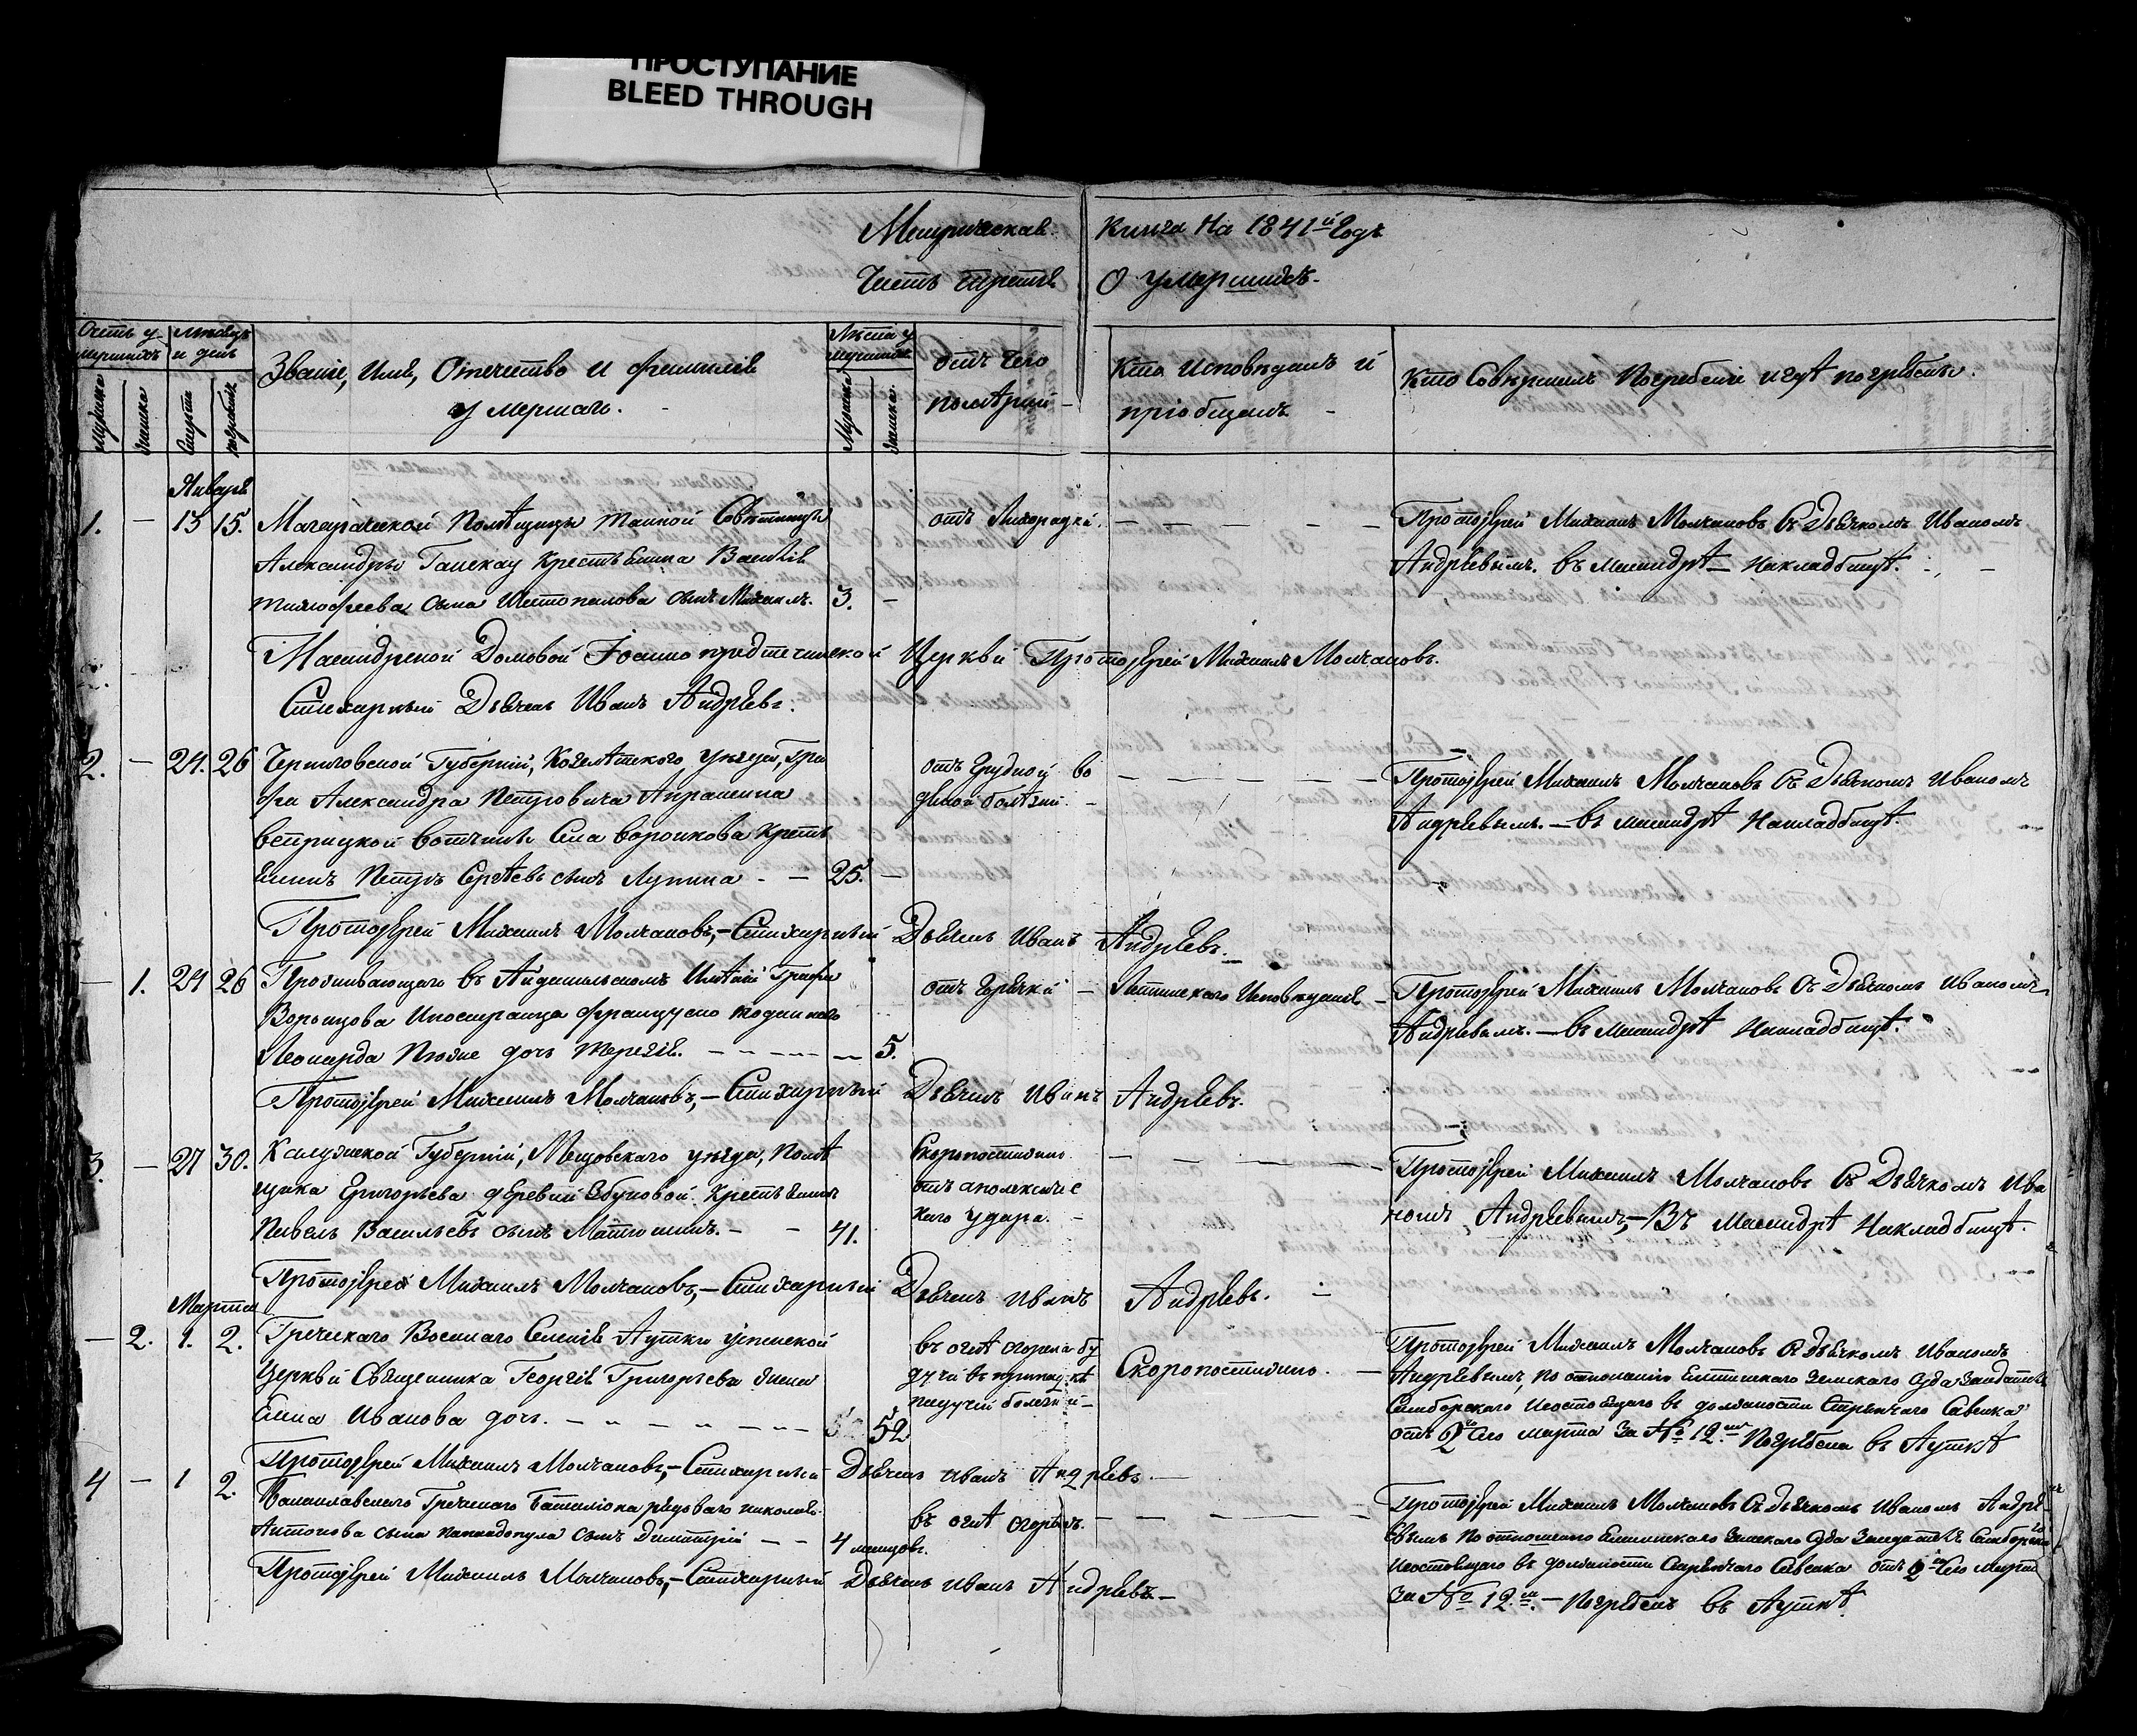 ПРОСТУПАНИЕ
BLEED THROUGH
Метрическая Книга На 1841й Годъ
Часть третія О умершихъ.
Счетъ умершихъ
Мѣсяцъ и день
Званіе, Имя, Отечество и фамилія умершаго.
Лѣта умершаго
отъ чего померъ
Кто Исповѣдалъ и пріобщалъ
Кто Совершалъ Погребеніе и гдѣ погребены.
мужеска
женска
смерти
погребенія
Мужеска
женска
Января
1. — 13 15. Помѣщицы тайной Совѣтницы
Александры крестьянина Василія
Тимофеева сына Шестопалова сынъ Михаилъ. 3. —
отъ Лихорадки.
Протоіерей Михаилъ Молчановъ съ Дьячкомъ Иваномъ
Андреевымъ. въ Массандрѣ — на кладбищѣ.
Массандрской Домовой Іоанно предтечинской Церкви Протоіерей Михаилъ Молчановъ.
Стихарный Дьячекъ Иванъ Андреевъ.
2. — 24. 26 Черниговской Губерніи, Козелѣтского уѣзда, Гра
фа Александра Петровича Апраксина
вотчины Села крестья
янинъ Петръ Сергѣевъ сынъ Лутина — 25. —
отъ грудной во
дяной болѣзни. —
Протоіерей Михаилъ Молчановъ съ Дьячкомъ Иваномъ
Андреевымъ. — въ Массандрѣ на кладбищѣ.
Протоіерей Михаилъ Молчановъ, — Стихарный Дьячекъ Иванъ Андреевъ.
— 1. 24 26 Проживающаго въ Имѣніи Графа
Воронцова Иностранца французско подданного
Леонарда дочь Терезія. — 5.
отъ горячки —
Латинского Исповѣданія —
Протоіерей Михаилъ Молчановъ съ Дьячкомъ Иваномъ
Андреевымъ. — въ Массандрѣ на кладбищѣ.
Протоіерей Михаилъ Молчановъ, — Стихарный Дьячекъ Иванъ Андреевъ.
3. — 27 30. Калужской Губерніи, Мещовского уѣзда, Помѣ
щика Григорьева деревни крестьянинъ
Павелъ Васильевъ сынъ Матюшинъ. — 41.
Скоропостижно
отъ апоплексичес
каго удара. —
Протоіерей Михаилъ Молчановъ съ Дьячкомъ Ива
номъ Андреевымъ, — Въ Массандрѣ на кладбищѣ.
Протоіерей Михаилъ Молчановъ, — Стихарный Дьячекъ Иванъ Андреевъ.
Марта
— 2. 1. 2. Греческаго Военнаго Селенія Аутки успенской
Церкви Священника Георгія Григорьева жена
Елена Иванова дочь. — 52
въ огнѣ сгорела бу
дучи въ припадкѣ
падучей болезни —
Скоропостижно. —
Протоіерей Михаилъ Молчановъ съ дьячкомъ Иваномъ
Андреевымъ, по отношенію Ялтинскаго Земскаго Суда Засѣдателя
Самборского Исправляющаго въ должности Стряпчаго Савенка
отъ 2го Сего марта за № 12м Погребена въ Ауткѣ
Протоіерей Михаилъ Молчановъ, — Стихарный Дьячекъ Иванъ Андреевъ. —
4 — 1 2. Балаклавского Греческаго Баталіона рядоваго Николая
Антонова сына Папандопула сынъ Димитрій — — 4 месяцовъ.
въ огнѣ сгорелъ.
Протоіерей Михаилъ Молчановъ съ дьячкомъ Иваномъ Андре
евымъ по отношенію Ялтинскаго Земскаго Суда Заседателя Самборского
въ должности Стряпчаго Савенка отъ 2го Сего Марта
за № 12м. — Погребенъ въ Ауткѣ.
Протоіерей Михаилъ Молчановъ, — Стихарный Дьячекъ Иванъ Андреевъ —